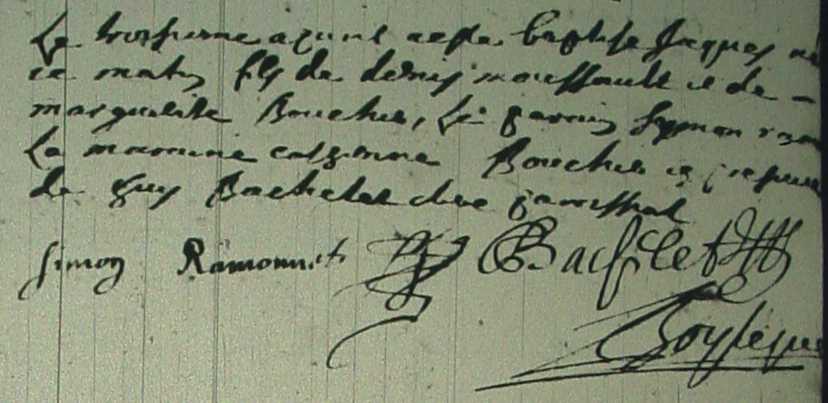 Le troisieme avril a esté baptise Jacques né
ce matin fils de denis moussault et de
marguerite Boucher, le parain Symon ramo
La maraine catherine Boucher en presence
de Guy Bachelet clerc paroissial
Simon Ramonnet Bachelet